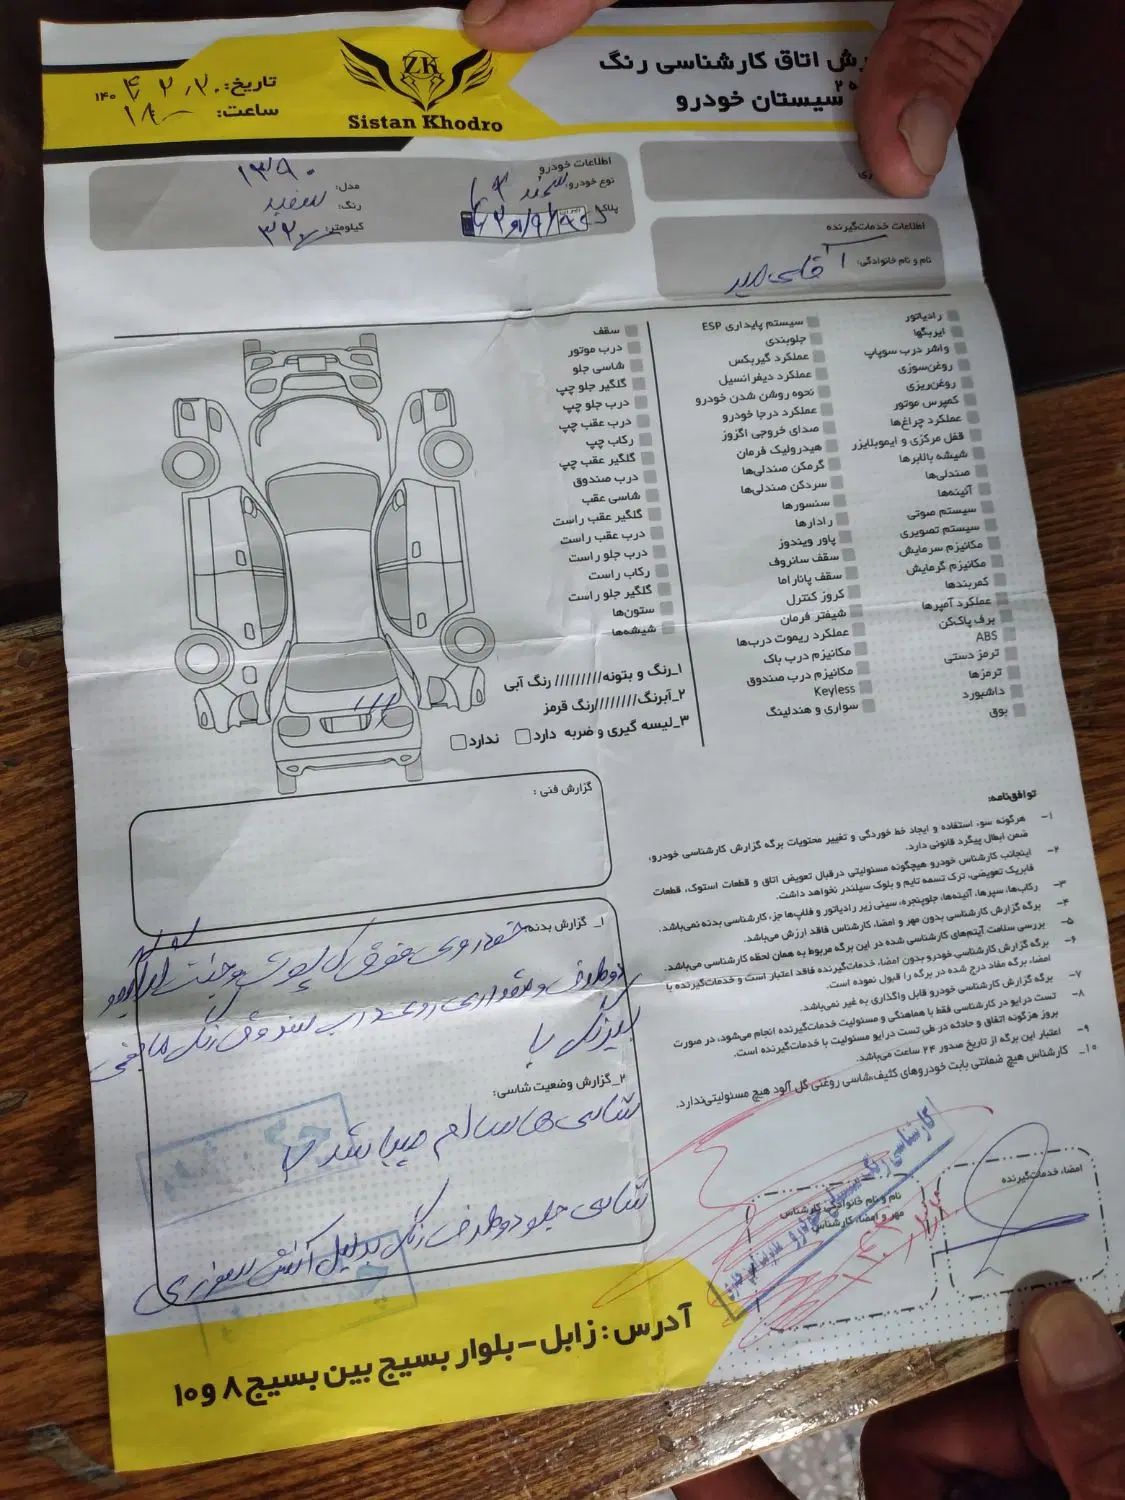 رش اتاق کارشناسی رنگ
سیستان خودرو
ZK
Sistan Khodro
تاریخ: ۱۴۰۴/۲/۲۰
ساعت: ۱۸
اطلاعات خودرو
نوع خودرو: سمند
پلاک:
مدل: ۱۳۹۰
رنگ: سفید
کیلومتر:
اطلاعات خدمات‌گیرنده
نام و نام خانوادگی:
رادیاتور
ایربگ‌ها
واشر درب سوپاپ
روغن‌سوزی
روغن‌ریزی
کمپرس موتور
عملکرد چراغ‌ها
قفل مرکزی و ایموبلایزر
شیشه بالابرها
صندلی‌ها
آئینه‌ها
سیستم صوتی
سیستم تصویری
مکانیزم سرمایش
مکانیزم گرمایش
کمربندها
عملکرد آمپرها
برف پاک‌کن
ABS
ترمز دستی
ترمزها
داشبورد
بوق
سیستم پایداری ESP
جلوبندی
عملکرد گیربکس
عملکرد دیفرانسیل
نحوه روشن شدن خودرو
عملکرد درجا خودرو
صدای خروجی اگزوز
هیدرولیک فرمان
گرمکن صندلی‌ها
سردکن صندلی‌ها
سنسورها
رادارها
پاور ویندوز
سقف سانروف
سقف پاناراما
کروز کنترل
شیفتر فرمان
عملکرد ریموت درب‌ها
مکانیزم درب باک
مکانیزم درب صندوق
Keyless
سواری و هندلینگ
سقف
درب موتور
شاسی جلو
گلگیر جلو چپ
درب جلو چپ
درب عقب چپ
رکاب چپ
گلگیر عقب چپ
درب صندوق
شاسی عقب
گلگیر عقب راست
درب عقب راست
درب جلو راست
رکاب راست
گلگیر جلو راست
ستون‌ها
شیشه‌ها
۱_رنگ و بتونه///////// رنگ آبی
۲_آبرنگ////////رنگ قرمز
۳_لیسه گیری و ضربه دارد ندارد
گزارش فنی :
توافق‌نامه:
۱- هرگونه سوء استفاده و ایجاد خط خوردگی و تغییر محتویات برگه گزارش کارشناسی خودرو،
ضمن ابطال پیگرد قانونی دارد.
۲- اینجانب کارشناس خودرو هیچگونه مسئولیتی درقبال تعویض اتاق و قطعات استوک، قطعات
فابریک تعویضی، ترک تسمه تایم و بلوک سیلندر نخواهد داشت.
۳- رکاب‌ها، سپرها، آئینه‌ها، جلوپنجره، سینی زیر رادیاتور و فلاپ‌ها جزء کارشناسی بدنه نمی‌باشد.
۴- برگه گزارش کارشناسی بدون مهر و امضاء کارشناس فاقد ارزش می‌باشد.
۵- بررسی سلامت آیتم‌های کارشناسی شده در این برگه مربوط به همان لحظه کارشناسی می‌باشد.
۶- برگه گزارش کارشناسی خودرو بدون امضاء خدمات‌گیرنده فاقد اعتبار است و خدمات‌گیرنده با
امضاء برگه مفاد درج شده در برگه را قبول نموده است.
۷- برگه گزارش کارشناسی خودرو قابل واگذاری به غیر نمی‌باشد.
۸- تست درایو در کارشناسی فقط با هماهنگی و مسئولیت خدمات‌گیرنده انجام می‌شود، در صورت
بروز هرگونه اتفاق و حادثه در طی تست درایو مسئولیت با خدمات‌گیرنده است.
۹- اعتبار این برگه از تاریخ صدور ۲۴ ساعت می‌باشد.
۱۰_ کارشناس هیچ ضمانتی بابت خودروهای کثیف،شاسی روغنی گل آلود هیچ مسئولیتی‌ندارد.
۱_ گزارش بدنه:
خودروی فوق
روی درب صندوق رنگ
۲_گزارش وضعیت شاسی:
شاسی ها سالم میباشد
شاسی جلو دو طرف رنگ بدلیل آتش سوزی
نام و نام خانوادگی کارشناس
مهر و امضاء کارشناس
امضاء خدمات‌گیرنده
کارشناسی رنگ سیستان خودرو
آدرس : زابل-بلوار بسیج بین بسیج۸ و۱۰